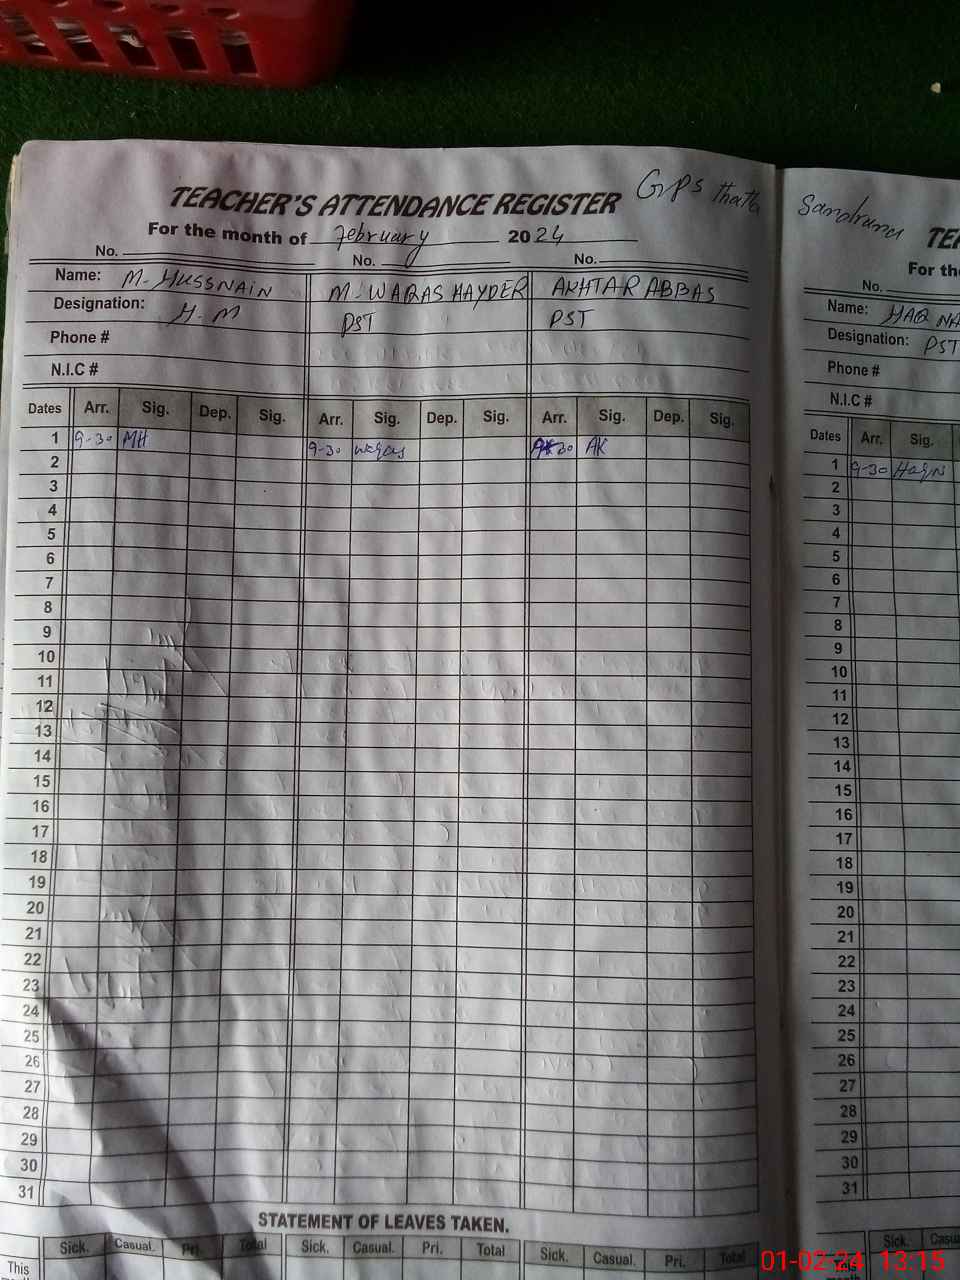 TEACHER'S ATTENDANCE REGISTER GPS thatta
For the month of February 2024
No. No. No.
Name: M. HUSSNAIN M. WARAS HAYDER AKHTAR ABBAS
Designation: H.M PST PST
Phone #
N.I.C #
Dates Arr. Sig. Dep. Sig. Arr. Sig. Dep. Sig. Arr. Sig. Dep. Sig.
1 9-30 MH 9-30 waqas 9-30 AK
2
3
4
5
6
7
8
9
10
11
12
13
14
15
16
17
18
19
20
21
22
23
24
25
26
27
28
29
30
31
STATEMENT OF LEAVES TAKEN.
Sick. Casual. Pri. Total Sick. Casual. Pri. Total Sick. Casual. Pri. Total
This
Sandrana TE
For the
No.
Name: HAQ NA
Designation: PST
Phone #
N.I.C #
Dates Arr. Sig.
1 9-30 HaqN
2
3
4
5
6
7
8
9
10
11
12
13
14
15
16
17
18
19
20
21
22
23
24
25
26
27
28
29
30
31
Sick. Casua
This
01-02-24 13:15